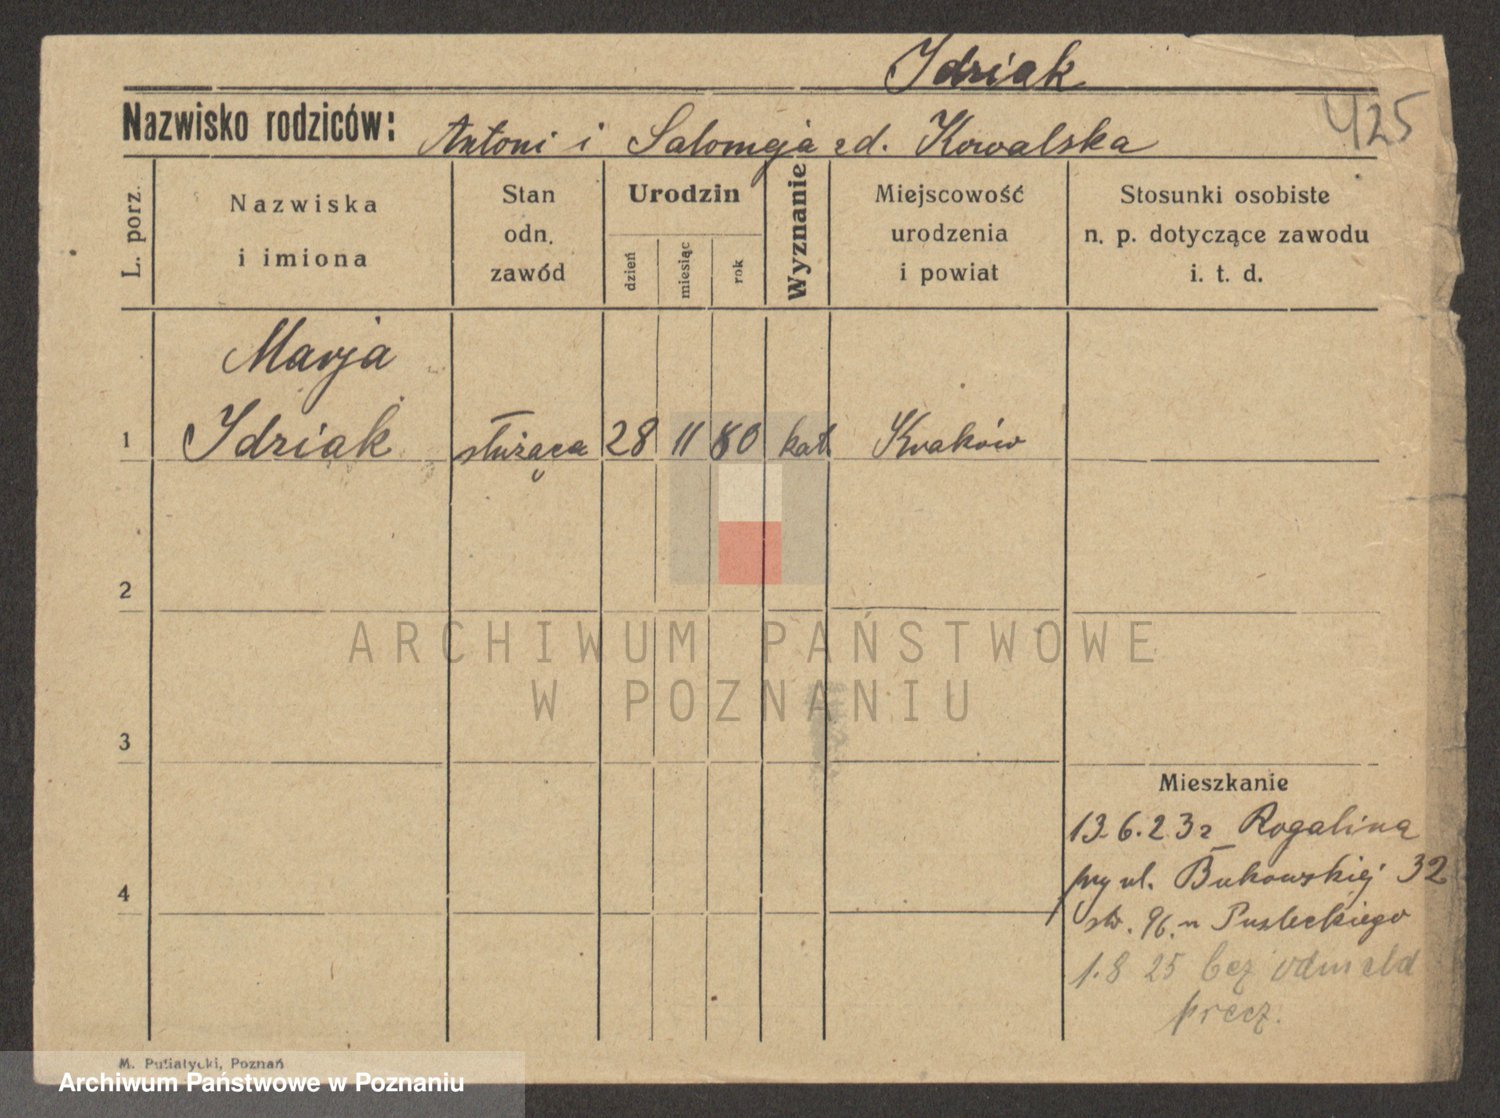 Idziak
425
Nazwisko rodziców: Antoni i Salomeja zd. Kowalska
L. porz.
Nazwiska
i imiona
Stan
odn.
zawód
Urodzin
dzień
miesiąc
rok
Wyznanie
Miejscowość
urodzenia
i powiat
Stosunki osobiste
n. p. dotyczące zawodu
i. t. d.
Marja
1 Idziak służąca 28 11 80 kat. Kraków
2
ARCHIWUM PAŃSTWOWE
W POZNANIU
3
Mieszkanie
13.6.23 z Rogalina
przy ul. Bukowskiej 32
4
1.8 25 bez odmeld
precz.
M. Putiatycki, Poznań
Archiwum Państwowe w Poznaniu